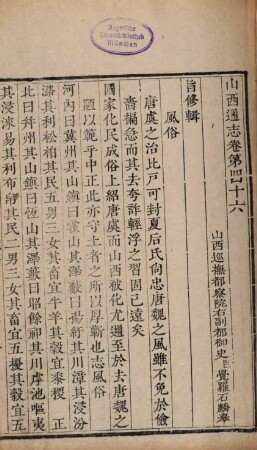 Bayerische
Staatsbibliothek
München
山西通志卷第四十六
山西巡撫都察院右副都御史臣覺羅石麟奉
旨修輯
風俗
唐虞之治比戶可封夏后氏尚忠唐魏之風雖不免於儉
嗇褊急而其去夸詐輕浮之習固已遠矣
國家化民成俗上紹唐虞而山西被化尤邇至於去唐魏之
陋以範乎中正此亦守土者之所以厚勷也志風俗
河內曰冀州其山鎮曰霍山其澤藪曰楊紆其川漳其浸汾
潞其利松柏其民五男三女其畜宜牛羊其穀宜黍稷正
北曰幷州其山鎮曰恆山其澤藪曰昭餘祁其川虖池嘔夷
其浸淶易其利布帛其民二男三女其畜宜五擾其穀宜五